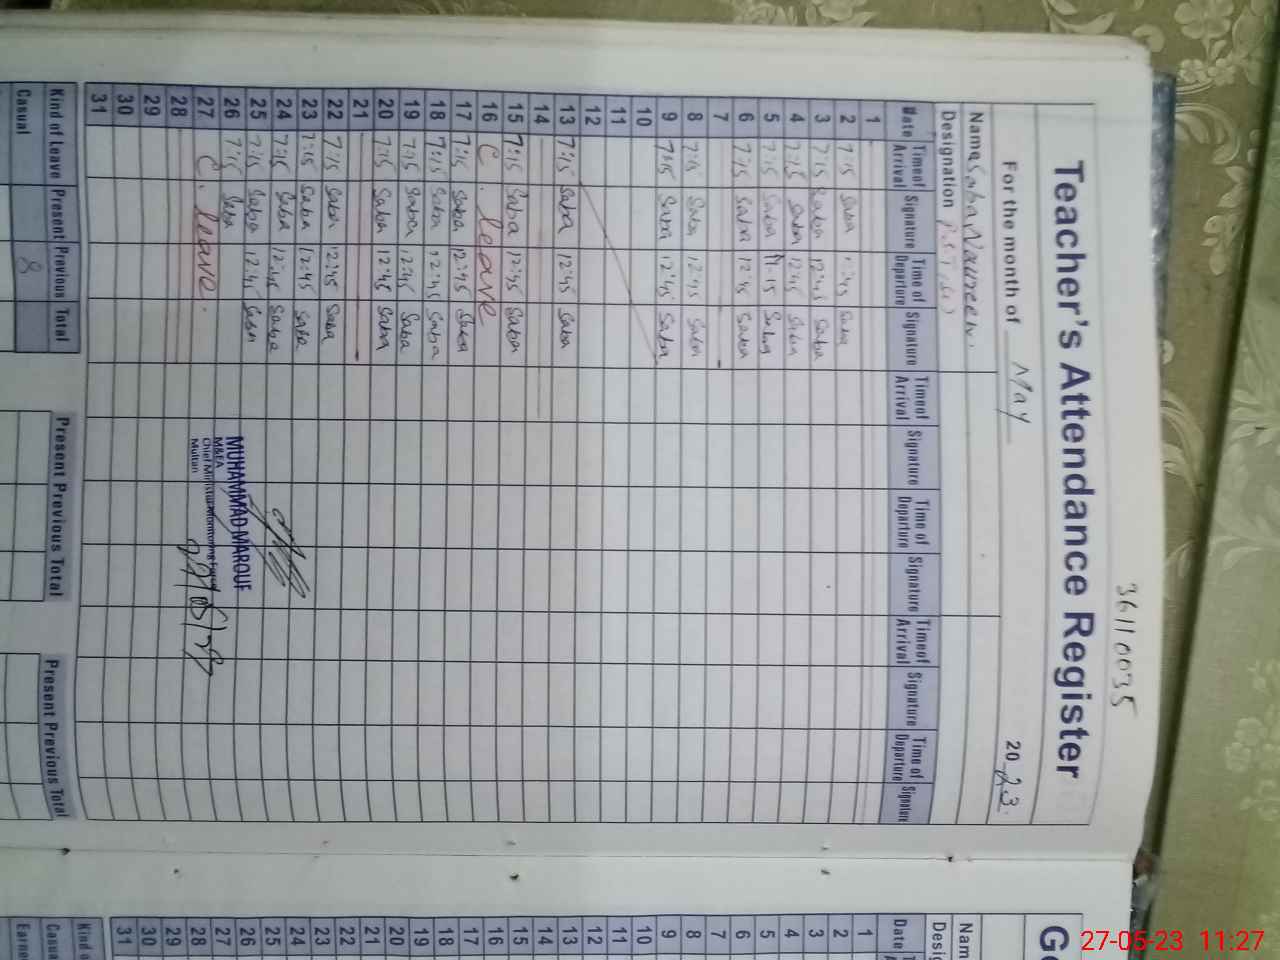 36110035
Teacher's Attendance Register
For the month of May 2023
Name Saba Noureen.
Designation
Date Time of Arrival Signature Time of Departure Signature Time of Arrival Signature Time of Departure Signature Time of Arrival Signature Time of Departure Signature
1
2 7:15 Saba 12:45 Saba
3 7:15 Saba 12:45 Saba
4 7:15 Saba 12:45 Saba
5 7:15 Saba 11:15 Saba
6 7:15 Saba 12:45 Saba
7
8 7:15 Saba 12:45 Saba
9 7:15 Saba 12:45 Saba
10
11
12
13 7:15 Saba 12:45 Saba
14
15 7:15 Saba 12:45 Saba
16 C. leave
17 7:15 Saba 12:45 Saba
18 7:15 Saba 12:45 Saba
19 7:15 Saba 12:45 Saba
20 7:15 Saba 12:45 Saba
21
22 7:15 Saba 12:45 Saba
23 7:15 Saba 12:45 Saba
24 7:15 Saba 12:45 Saba
25 7:15 Saba 12:45 Saba
26 7:15 Saba
27 C. leave.
28
29
30
31
MUHAMMAD MAROUF
M&EA
Chief Minister Monitoring Force
Multan
Kind of Leave Present Previous Total Present Previous Total Present Previous Total
Casual 8
Ge
Nam
Desig
Date
1
2
3
4
5
6
7
8
9
10
11
12
13
14
15
16
17
18
19
20
21
22
23
24
25
26
27
28
29
30
31
Kind o
Casua
Earne
27-05-23 11:27